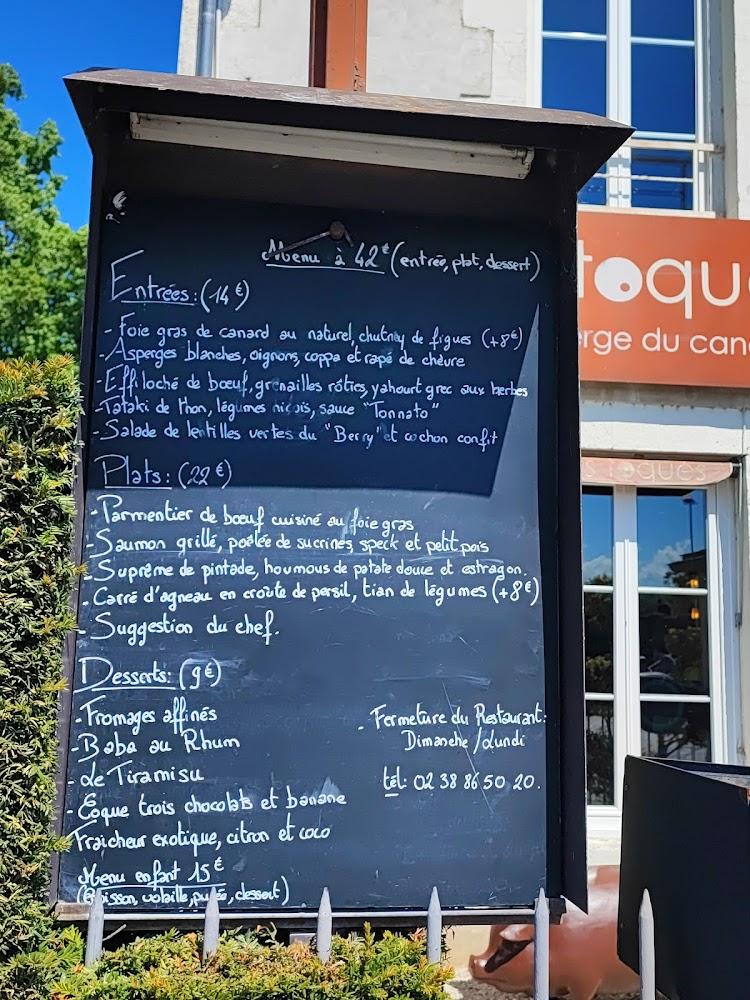 Menu à 42€ (entrée, plat, dessert)
Entrées: (14€)
- Foie gras de canard au naturel, chutney de figues (+8€)
- Asperges blanches, oignons, coppa et rapé de chèvre
- Effiloché de bœuf, grenailles rôties, yahourt grec aux herbes
- Tataki de thon, légumes niçois, sauce "Tonnato"
- Salade de lentilles vertes du "Berry" et cochon confit
Plats: (22€)
- Parmentier de bœuf cuisiné au foie gras
- Saumon grillé, poêlée de sucrines, speck et petit pois
- Suprême de pintade, houmous de patate douce et estragon.
- Carré d'agneau en croûte de persil, tian de légumes (+8€)
- Suggestion du chef.
Desserts: (9€)
- Fromages affinés
- Baba au Rhum
- Le Tiramisu
- Coque trois chocolats et banane
Fraicheur exotique, citron et coco
Menu enfant 15€
(Boisson, volaille, purée, dessert)
- Fermeture du Restaurant:
Dimanche / Lundi
tél: 02 38 86 50 20.
toqu
rge du can
s toques